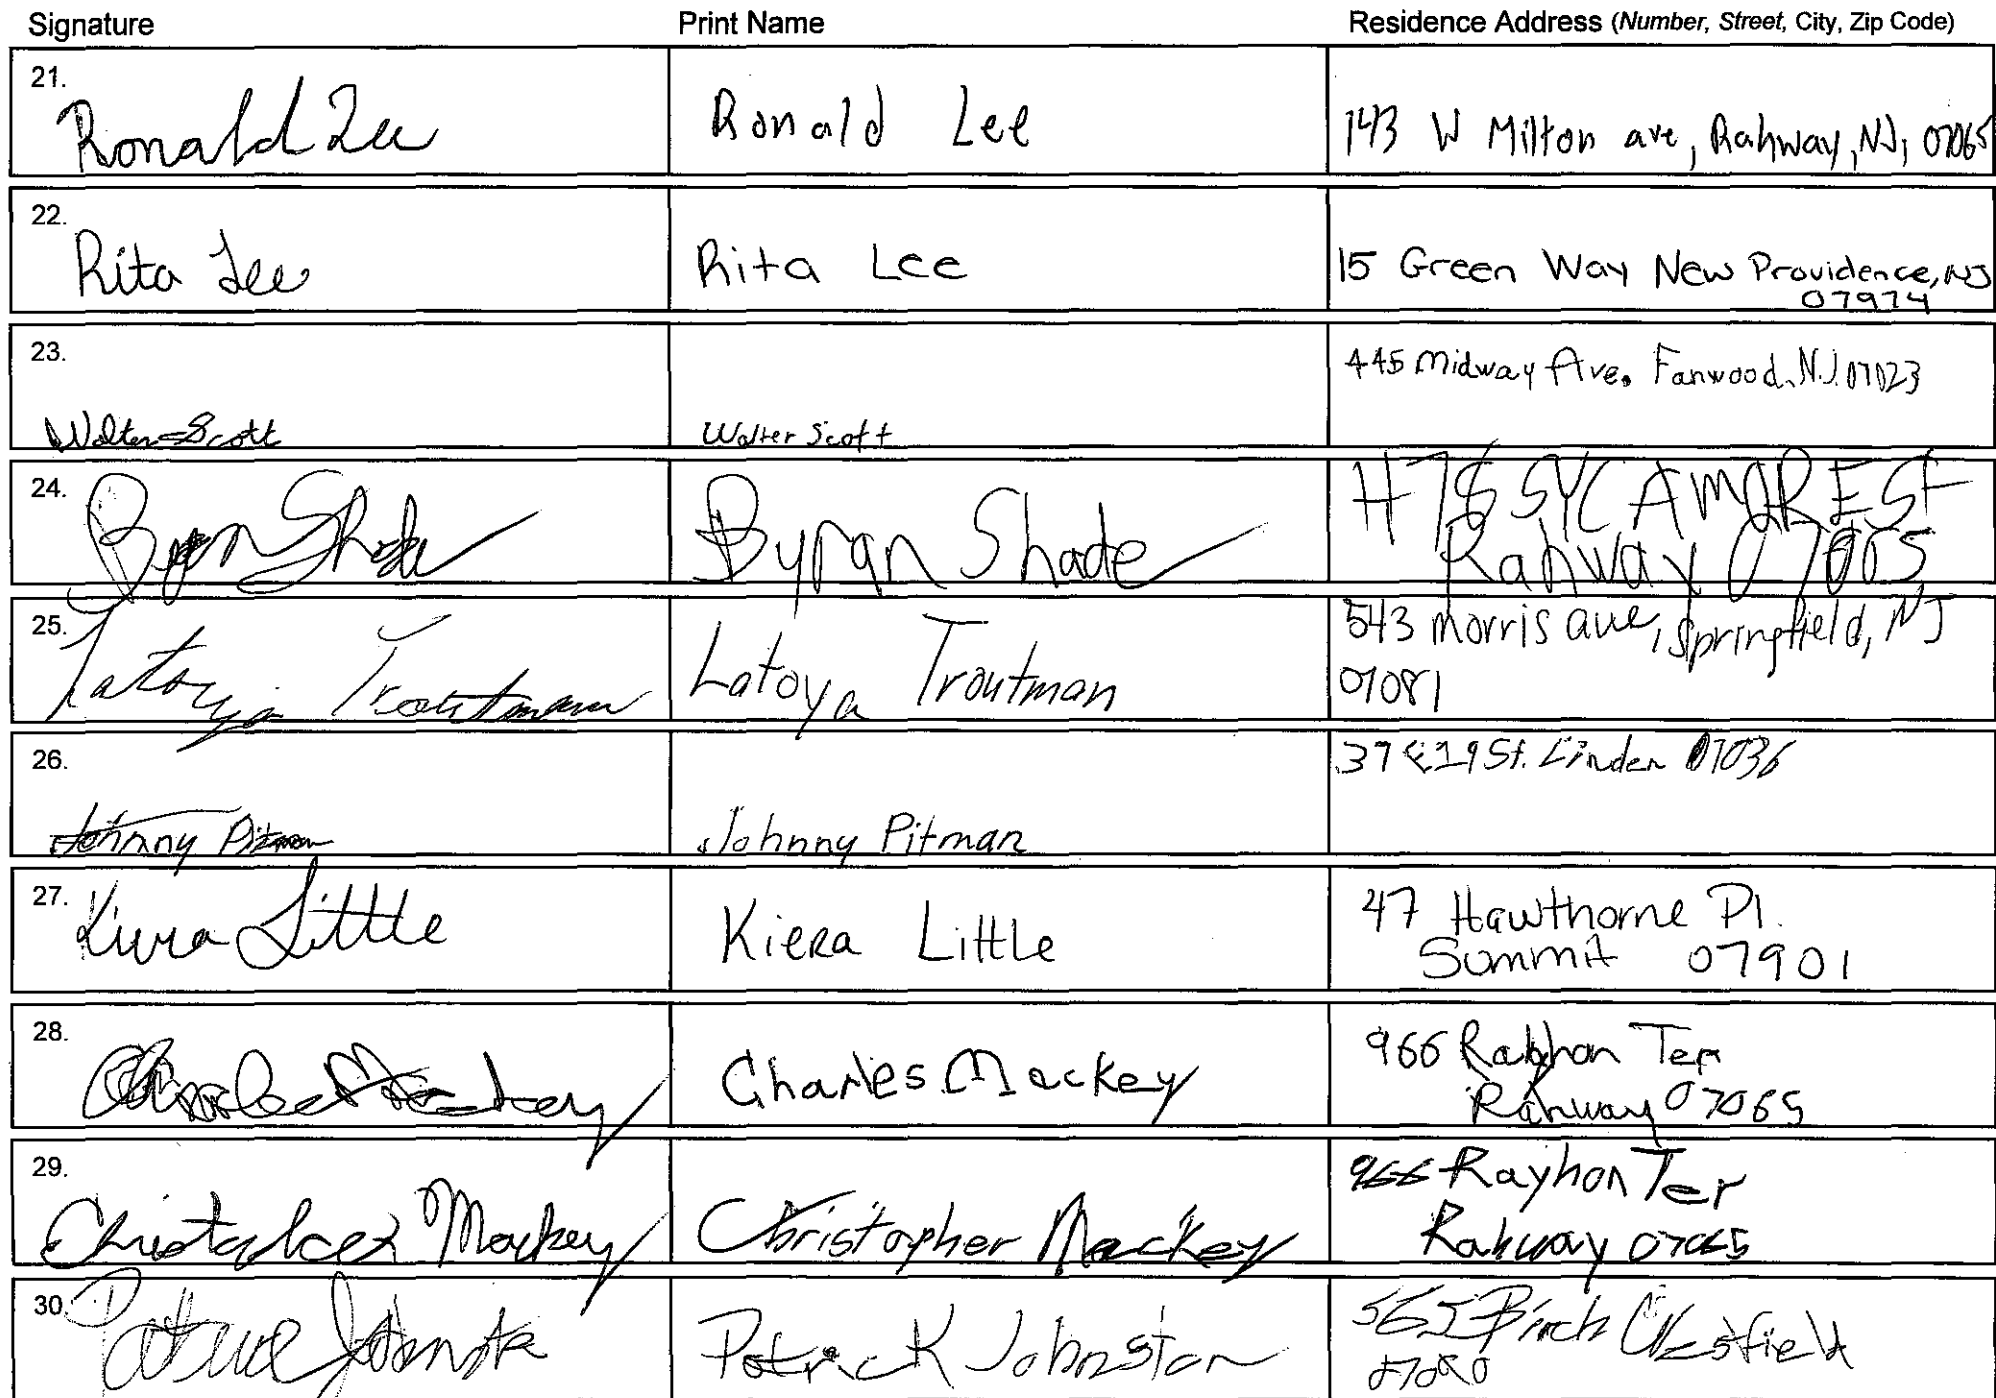 Signature Print Name Residence Address (Number, Street, City, Zip Code)
21.
Ronald Lee Ronald Lee 143 W Milton ave, Rahway, NJ, 07065
22.
Rita Lee Rita Lee 15 Green Way New Providence, NJ
07974
23.
445 Midway Ave. Fanwood, N.J. 07023
Walter Scott Walter Scott
24.
Byran Shade Byran Shade 1478 SYCAMORE ST
Rahway 07065
25.
Latoya Troutman Latoya Troutman 543 morris ave, Springfield, NJ
07081
26.
37 E 19 St. Linden 07036
Johnny Pitman Johnny Pitman
27.
Kiera Little Kiera Little 47 Hawthorne Pl.
Summit 07901
28.
Charles Mackey Charles Mackey 966 Ter
Rahway 07065
29.
Christopher Mackey Christopher Mackey 966 Rayhon Ter
Rahway 07065
30.
Patrick Johnston Patrick Johnston 565 Birch Westfield
07090